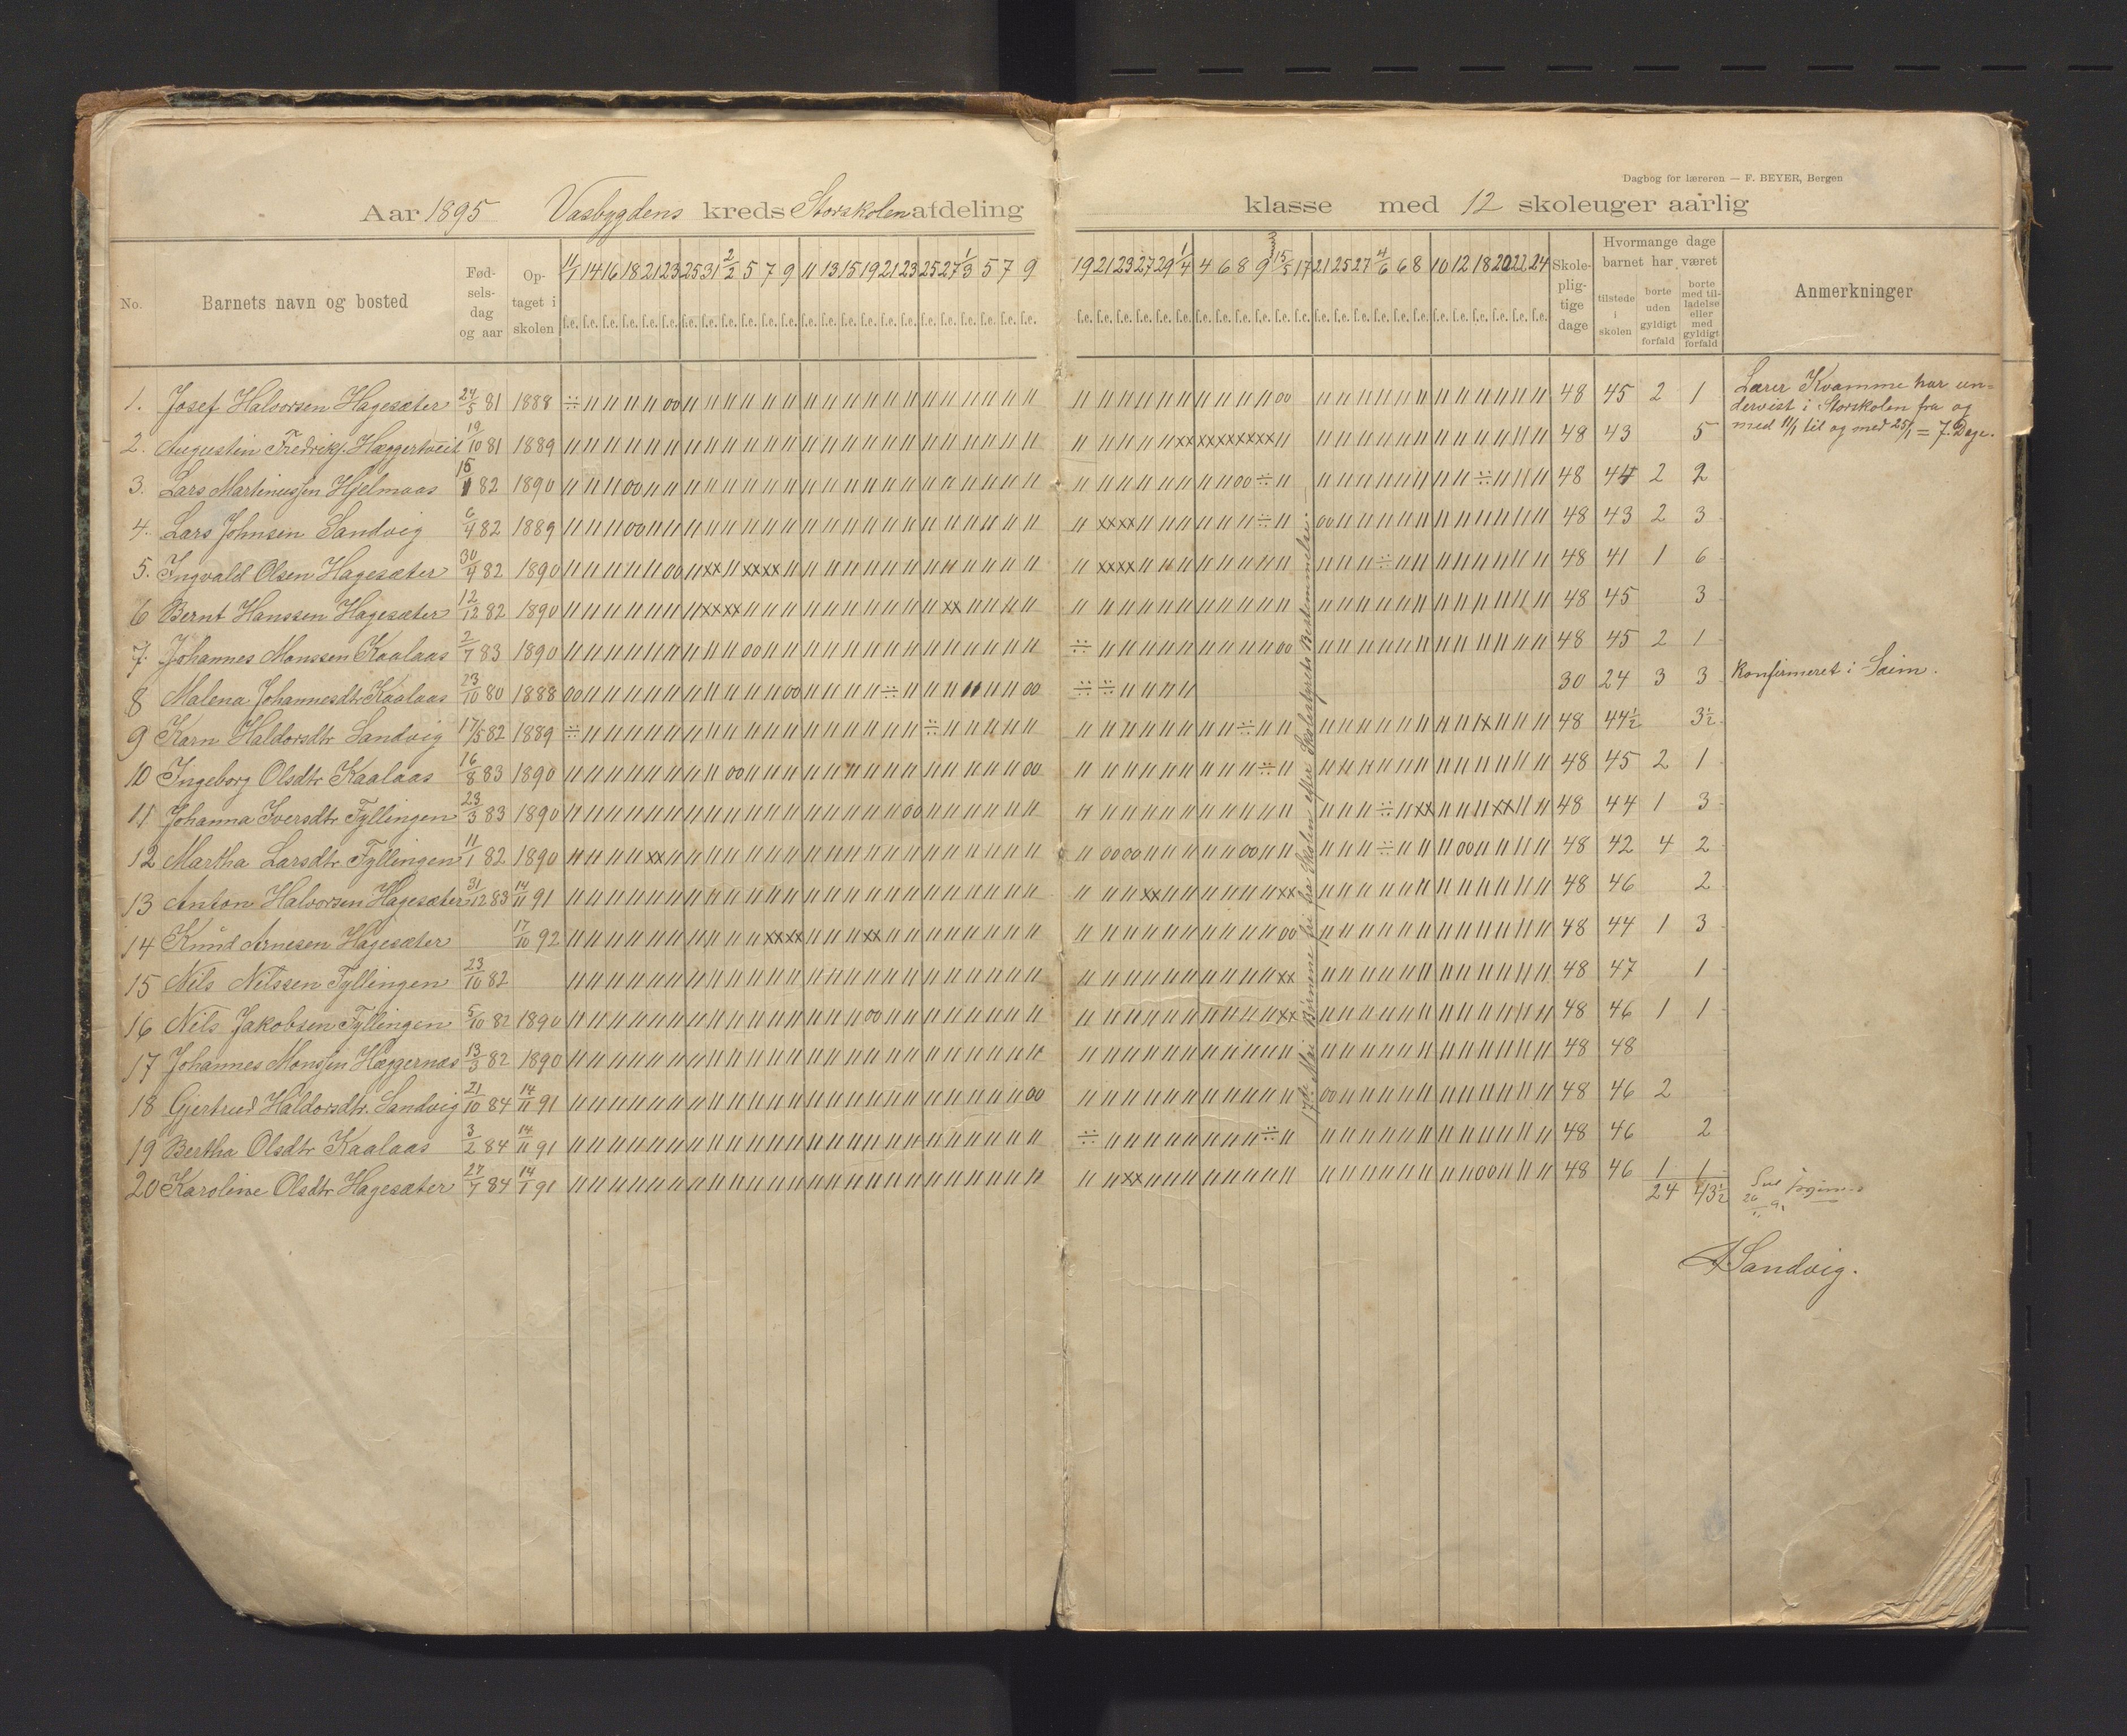 Dagbog for læreren — F. BEYER, Bergen
Aar 1895 Vasbygdens kreds Storskolen afdeling klasse med 12 skoleuger aarlig
No. Barnets navn og bosted Fødselsdag og aar Optaget i skolen 11/1 14 16 18 21 23 25 31 2/2 5 7 9 11 13 15 19 21 23 25 27 1/3 5 7 9 19 21 23 27 29 1/4 4 6 8 9 15/5 17 21 25 27 4/6 6 8 10 12 18 20 22 24 Skolepligtige dage Hvormange dage barnet har været tilstede i skolen borte uden gyldigt forfald borte med tilladelse eller med gyldigt forfald Anmerkninger
1. Josef Halvorsen Hagesæter 24/5 81 1888 48 45 2 1 Lærer Kvamme har un-
dervist i Storskolen fra og
med 11/1 til og med 25/1 = 7. Dage.
2. Augustin Fredriks. Hæggertveit 19/10 81 1889 48 43 5
3. Lars Martinussen Hjelmaas 15/1 82 1890 48 44 2 2
4. Lars Johnsen Sandvig 6/4 82 1889 48 43 2 3
5. Ingvald Olsen Hagesæter 30/4 82 1890 48 41 1 6
6 Bernt Hanssen Hagesæter 12/12 82 1890 48 45 3
7. Johannes Monssen Kaalaas 2/7 83 1890 48 45 2 1
8 Malena Johannesdtr Kaalaas 23/10 80 1888 30 24 3 3 Konfirmeret i Seim.
9 Karn Haldorsdtr Sandvig 17/5 82 1889 48 44½ 3½
10 Ingeborg Olsdtr Kaalaas 16/8 83 1890 48 45 2 1
11 Johanna Iversdtr Fyllingen 23/3 83 1890 48 44 1 3
12 Martha Larsdtr Fyllingen 11/1 82 1890 48 42 4 2
13 Anton Halvorsen Hagesæter 31/12 83 14/11 91 48 46 2
14 Knud Arnesen Hagesæter 17/10 92 48 44 1 3
15 Nils Nilssen Fyllingen 23/10 82 48 47 1
16 Nils Jakobsen Fyllingen 5/10 82 1890 48 46 1 1
17 Johannes Monssen Hæggernæs 13/3 82 1890 48 48
18 Gjertrud Haldorsdtr. Sandvig 21/10 84 14/11 91 48 46 2
19 Bertha Olsdtr Kaalaas 3/2 84 14/11 91 48 46 2
20 Karoline Olsdtr Hagesæter 27/7 84 14/1 91 48 46 1 1
24 43½
17de Mai Børnene fri fra Skolen efter Skolestyrets Bestemmelse.
Sandvig.